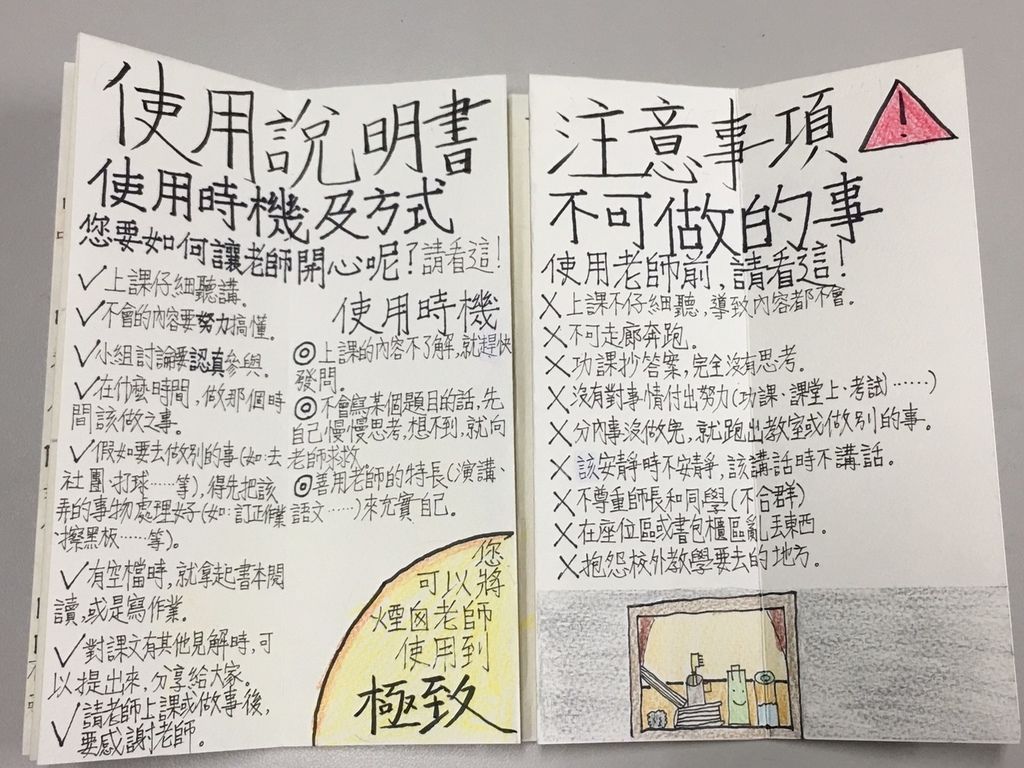 使用說明書
使用時機及方式
您要如何讓老師開心呢?請看這!
✓上課仔細聽講。
✓不會的內容要努力搞懂。
✓小組討論要認真參與。
✓在什麼時間,做那個時
間該做之事。
✓假如要去做別的事(如:去
社團、打球……等),得先把該
弄的事物處理好(如:訂正作業
、擦黑板……等)。
✓有空檔時,就拿起書本閱
讀,或是寫作業。
✓對課文有其他見解時,可
以提出來,分享給大家。
✓請老師上課或做事後,
要感謝老師。
使用時機
◎上課的內容不了解,就趕快
發問。
◎不會寫某個題目的話,先
自己慢慢思考,想不到,就向
老師求救
◎善用老師的特長(演講、
語文……)來充實自己。
您
可以將
煙囪老師
使用到
極致
注意事項
!
不可做的事
使用老師前,請看這!
✗上課不仔細聽,導致內容都不會。
✗不可走廊奔跑。
✗功課抄答案,完全沒有思考。
✗沒有對事情付出努力(功課、課堂上、考試……)
✗分內事沒做完,就跑出教室或做別的事。
✗該安靜時不安靜,該講話時不講話。
✗不尊重師長和同學(不合群)
✗在座位區或書包櫃區亂丟東西。
✗抱怨校外教學要去的地方。